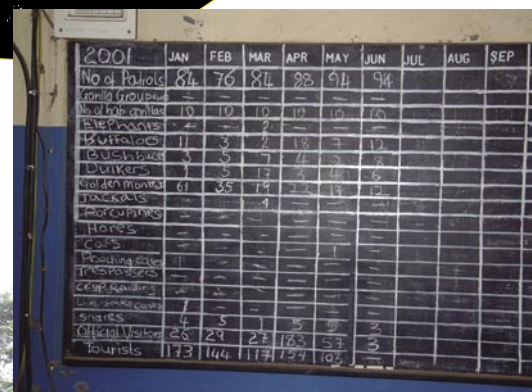 2001 JAN FEB MAR APR MAY JUN JUL AUG SEP
No of Patrols 84 76 84 88 94 94
Gorilla Group
No of hab gorillas 10 10 10 10 10 10
Elephants - - 2 - - -
Buffaloes 11 3 2 18 7 12
Bushbuck 3 5 7 4 2 8
Duikers 5 17 3 4 6
Golden Monkey 61 35 19 22 17 12
Jackals - - 4 - - -
Porcupines - - - - - -
Hares - - - - - -
Cats - - - - 1 -
Poaching cases
Trespassers - - - - - -
Crop Raiding - - - - - -
cases 1 - - - - -
Snares 4 5 5 5 3
Official Visitors 26 29 27 183 57 3
Tourists 173 144 117 154 103 -